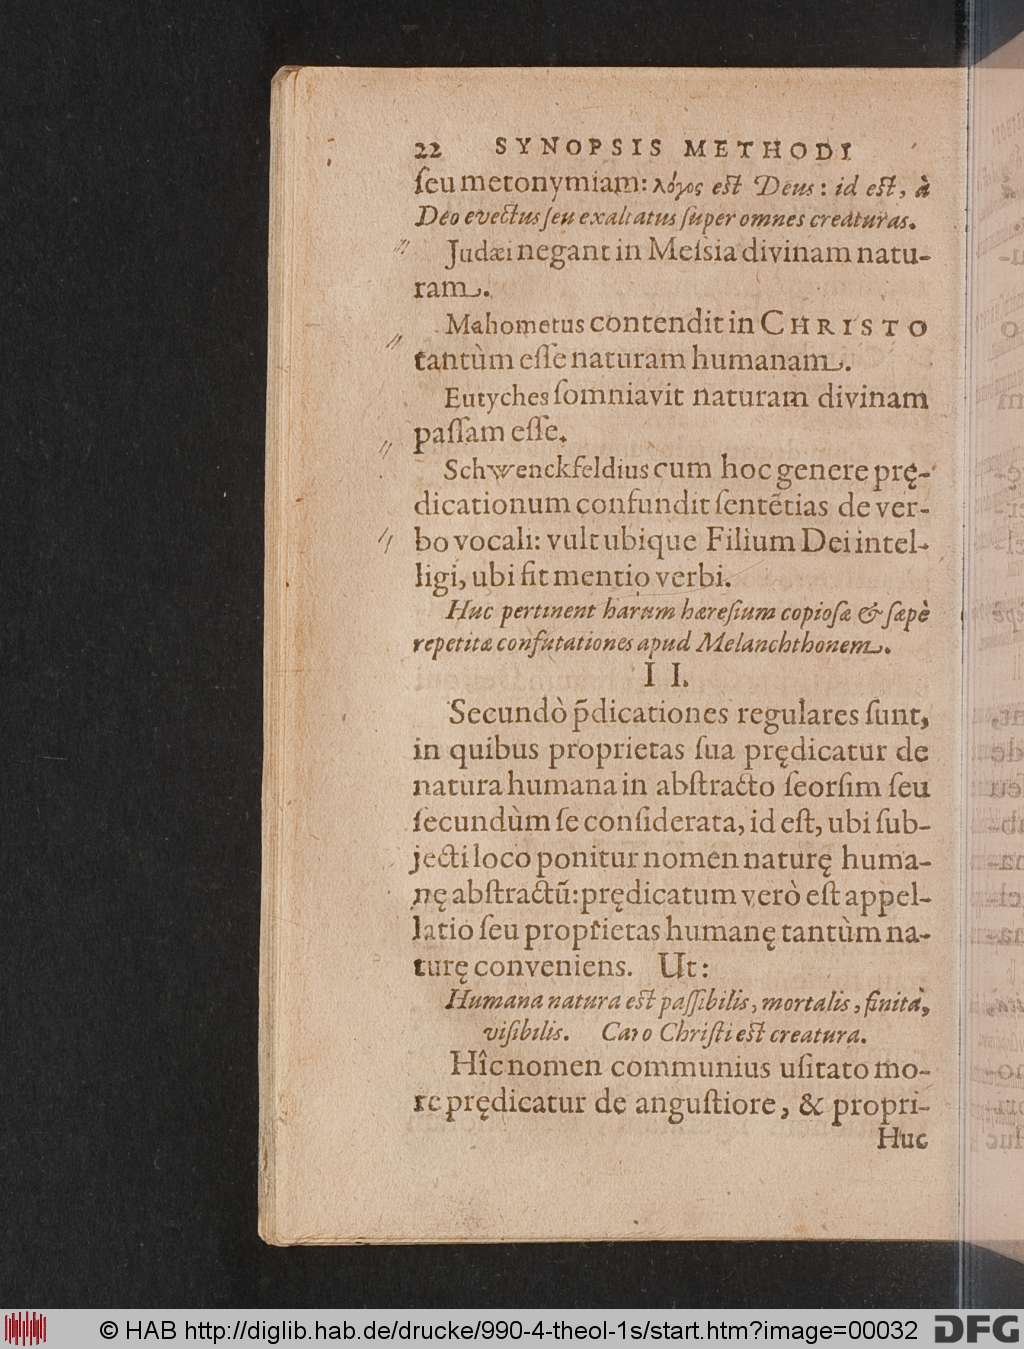 22 SYNOPSIS METHODI
ſeu metonymiam: λόγος eſt Deus: id eſt, à
Deo evectus ſeu exaltatus ſuper omnes creaturas.
Judæi negant in Meſsia divinam natu-
ram.
Mahometus contendit in CHRISTO
tantùm eſſe naturam humanam.
Eutyches ſomniavit naturam divinam
paſſam eſſe.
Schwenckfeldius cum hoc genere prę-
dicationum confundit ſentẽtias de ver-
bo vocali: vult ubique Filium Dei intel-
ligi, ubi fit mentio verbi.
Huc pertinent harum hæreſium copioſæ & ſæpè
repetitæ confutationes apud Melanchthonem.
II.
Secundò p̃dicationes regulares ſunt,
in quibus proprietas ſua prędicatur de
natura humana in abſtracto ſeorſim ſeu
ſecundùm ſe conſiderata, id eſt, ubi ſub-
jecti loco ponitur nomen naturę huma-
nę abſtractũ: prędicatum verò eſt appel-
latio ſeu proprietas humanę tantùm na-
turę conveniens. Ut:
Humana natura eſt paſſibilis, mortalis, finita,
viſibilis. Caro Chriſti eſt creatura.
Hîc nomen communius uſitato mo-
re prędicatur de anguſtiore, & propri-
Huc
© HAB http://diglib.hab.de/drucke/990-4-theol-1s/start.htm?image=00032
DFG